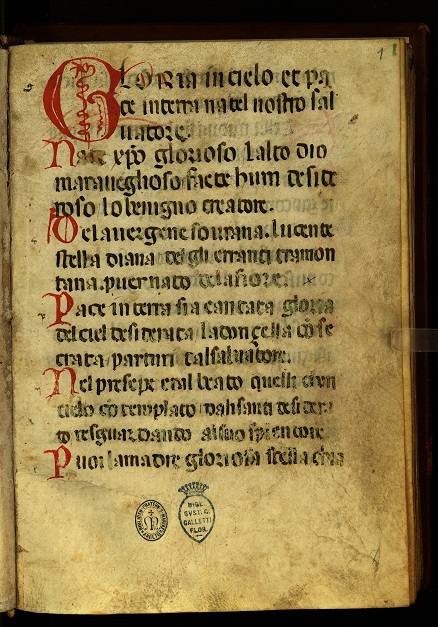 1
GLORIA in cielo et pa
ce in terra nat el nostro sal
uatore.
Nat e xpo glorioso lalto dio
maraueglioso facto hum deside
roso lo benigno creatore.
De la uergene sourana. lucente
stella diana de gli erranti tramon
tana. puer nato de la fiore.
Pace in terra sia cantata gloria
del ciel desiderata la donçella cōse
crata parturi tal saluatore.
Nel presepe era l beato quelli che in
cielo cōtemplato da li santi desidera
to resguardando al suo splendore
Puor la madre gloriosa stella chia
BIBL.
GVST. C.
GALLETTI
FLOR.